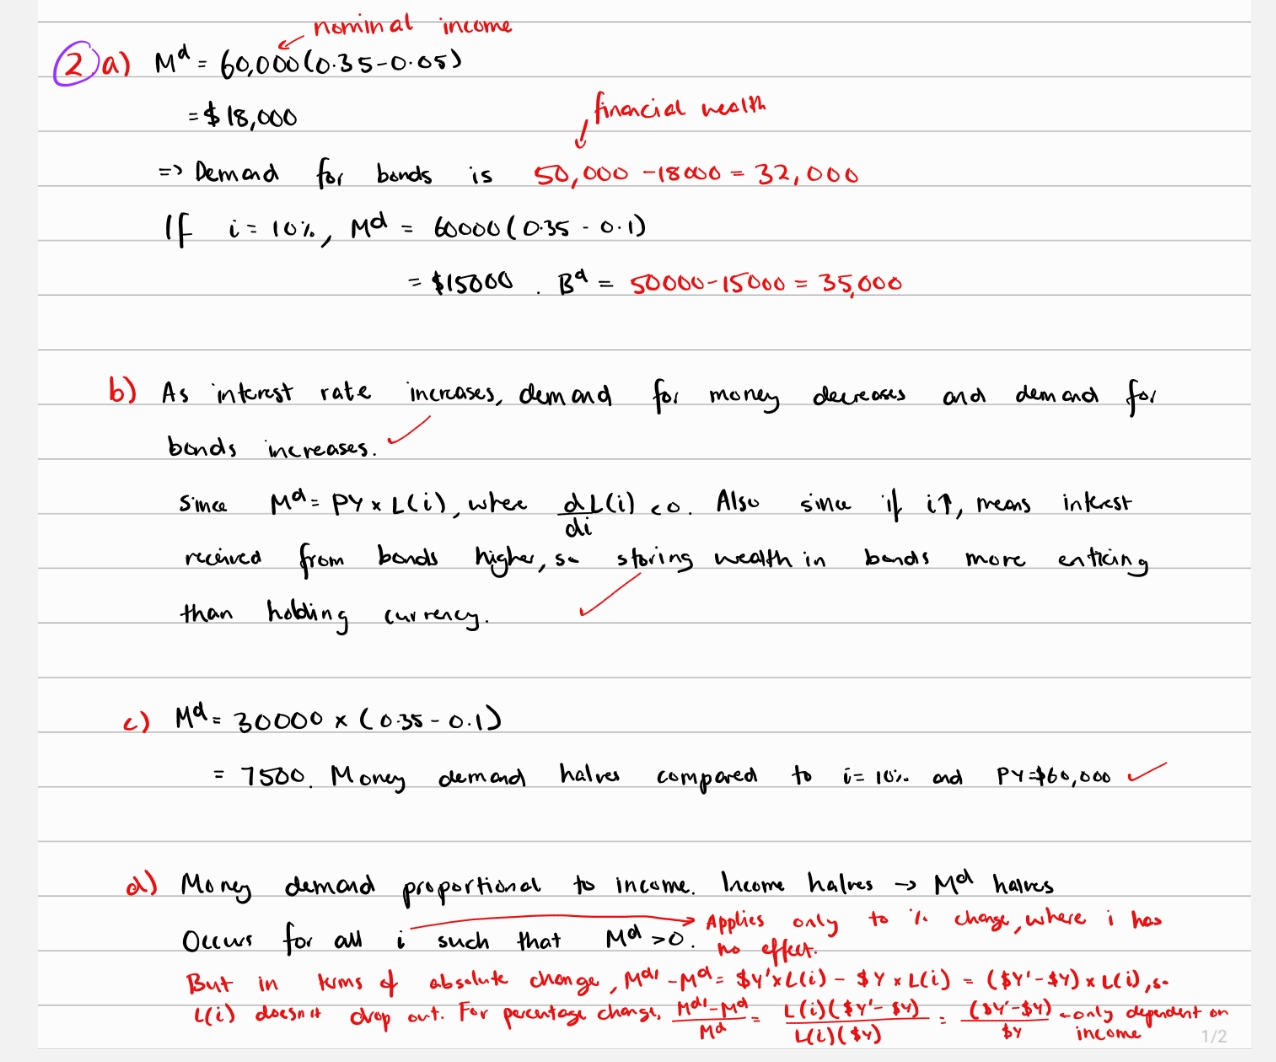 nominal income
2 a) Mᵈ = 60,000(0.35-0.05)
= $18,000
financial wealth
=> Demand for bonds is 50,000 -18000 = 32,000
If i = 10%, Mᵈ = 60000(0.35 - 0.1)
= $15000 . Bᵈ = 50000-15000 = 35,000
b) As interest rate increases, demand for money decreases and demand for
bonds increases. ✓
Since Mᵈ = PY × L(i), where dL(i)/di <0. Also since if i↑, means interest
received from bonds higher, so storing wealth in bonds more enticing
than holding currency. ✓
c) Mᵈ = 30000 × (0.35 - 0.1)
= 7500. Money demand halves compared to i = 10% and PY=$60,000 ✓
d) Money demand proportional to income. Income halves → Mᵈ halves
Occurs for all i such that Mᵈ >0. → Applies only to % change, where i has
no effect.
But in terms of absolute change, Mᵈ' - Mᵈ = $Y'×L(i) - $Y × L(i) = ($Y'-$Y) × L(i), so
L(i) doesn't drop out. For percentage change, Mᵈ'-Mᵈ/Mᵈ = L(i)($Y'-$Y)/L(i)($Y) = ($Y'-$Y)/$Y - only dependent on
income
1/2